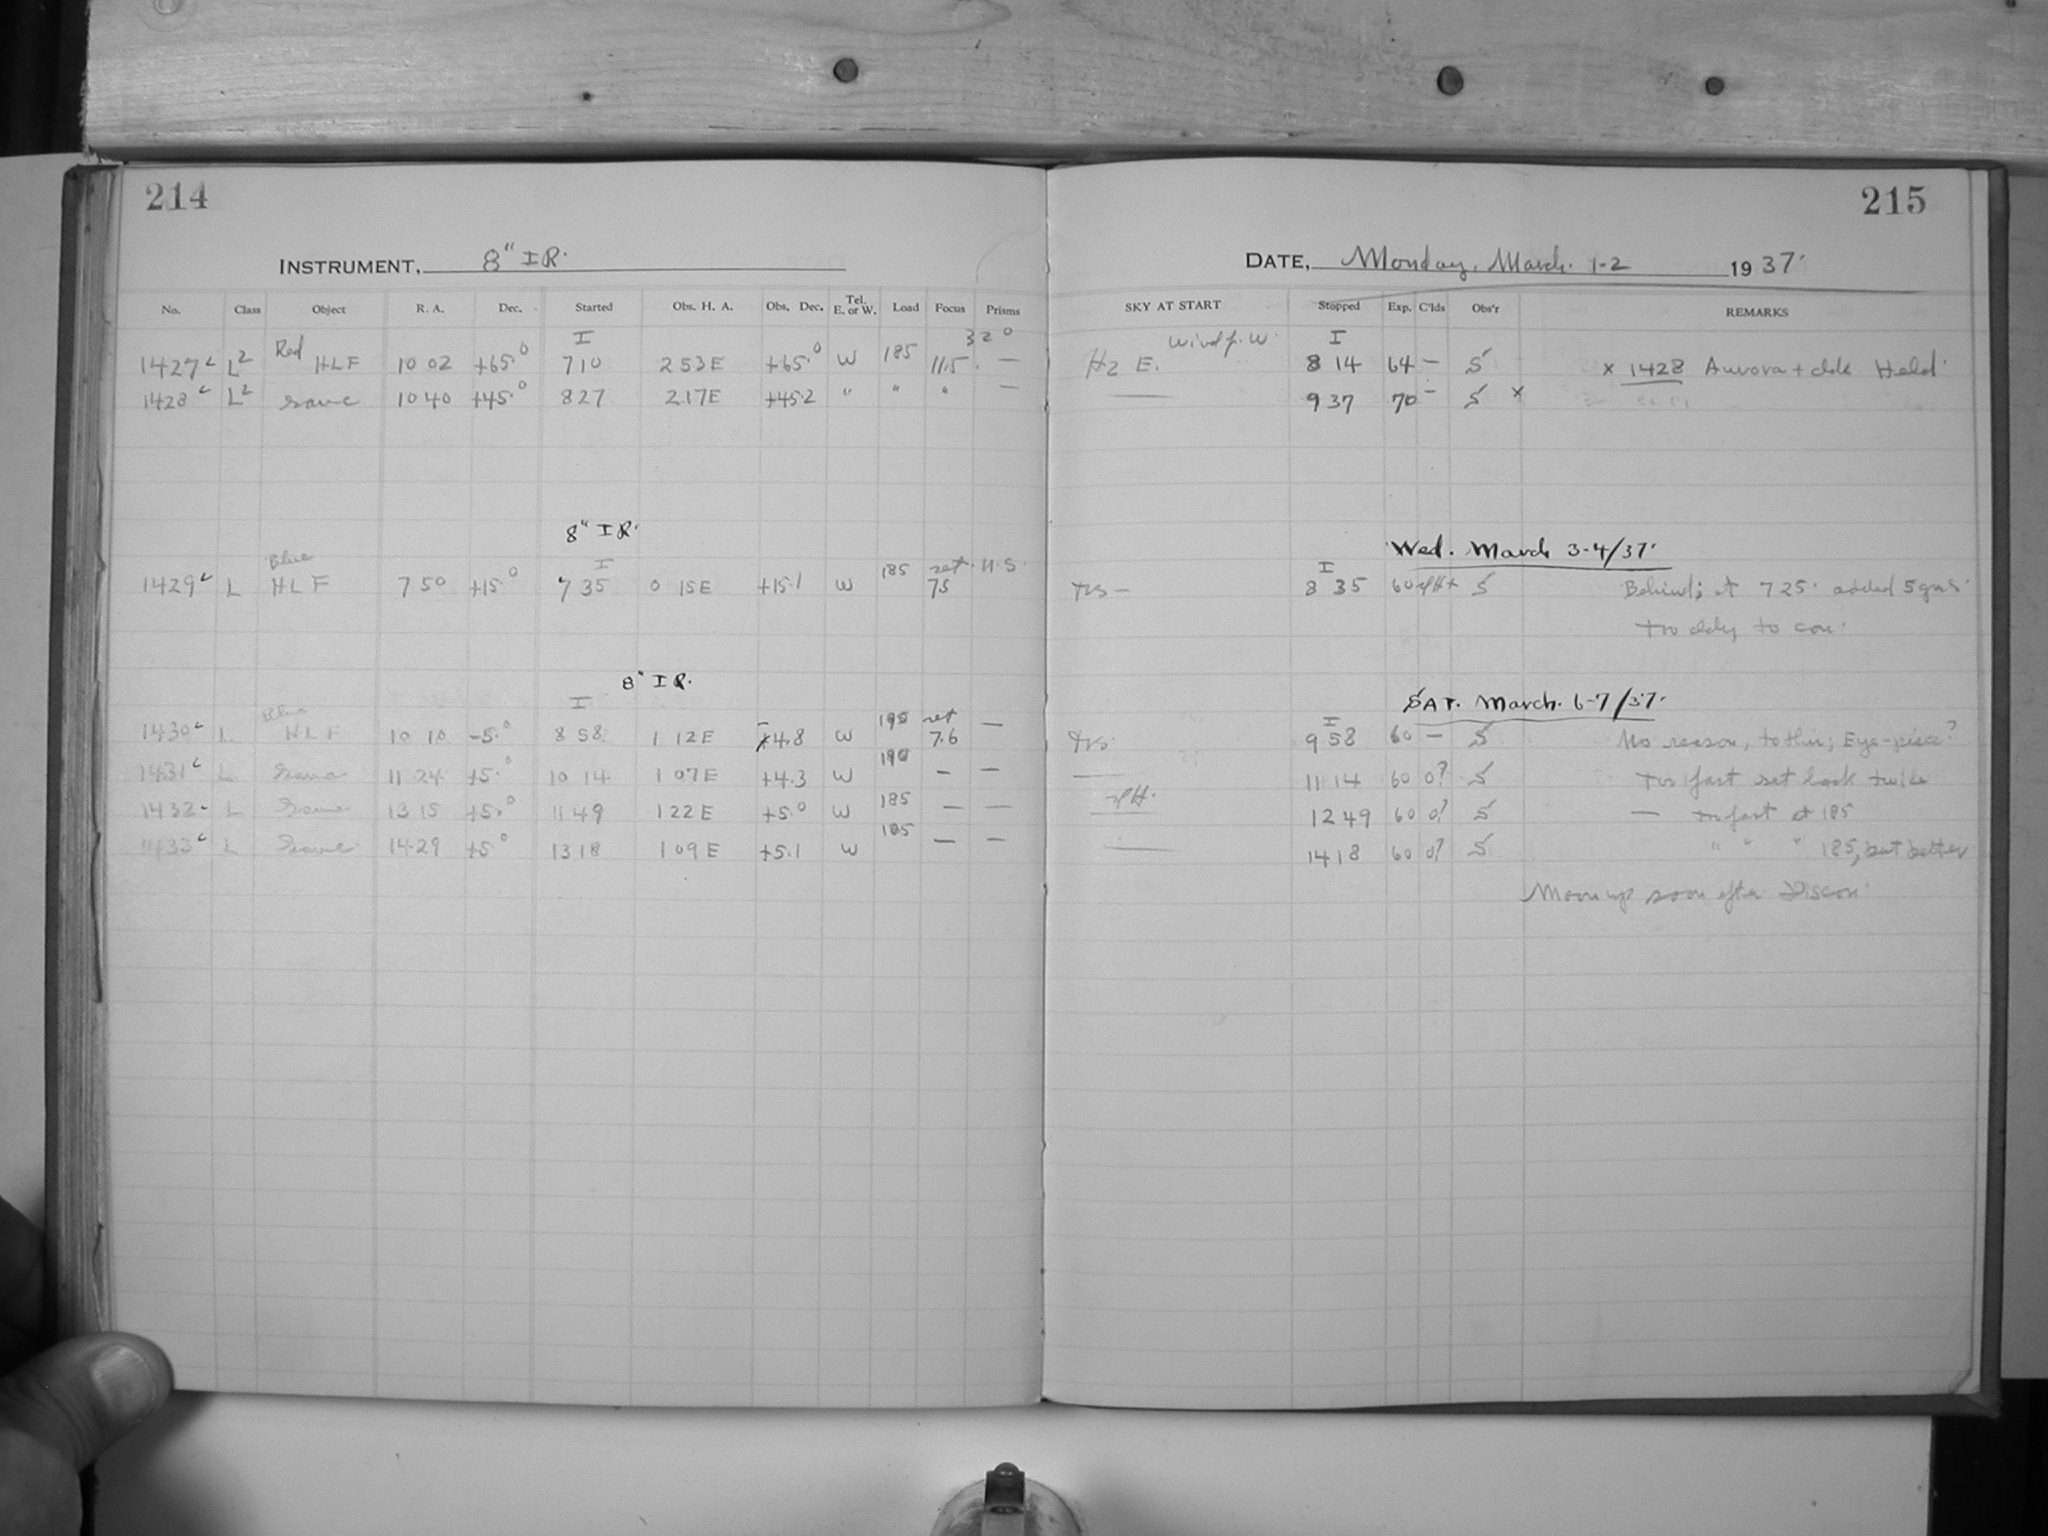 214
INSTRUMENT, 8" IR.
No. Class Object R. A. Dec. Started Obs. H. A. Obs. Dec. Tel. E. or W. Load Focus Prisms
I 32°
1427 L² Red HLF 10 02 +65.° 7 10 2 53E +65.° W 185 11.5 —
1428 L² same 10 40 +45.° 8 27 2.17E +45.2 " " " —
8" IR.
I
1429 L Blue HLF 7 50 +15.° 7 35 0 15E +15.1 W 185 ret. 75 H.S.
8" IR.
I
1430 L Blue HLF 10 10 -5.° 8 58 1 12E -4.8 W 195 ret 7.6 —
1431 L same 11 24 +5.° 10 14 1 07E +4.3 W 190 — —
1432 L same 13 15 +5.° 11 49 1 22E +5.° W 185 — —
1433 L same 14 29 +5.° 13 18 1 09E +5.1 W 185 — —
215
DATE, Monday, March. 1-2 1937.
SKY AT START Stopped Exp. C'lds Obs'r REMARKS
I
H2 E. Wind W. 8 14 64 — S x 1428 Aurora + clds Held.
— 9 37 70 — S x
Wed. March 3-4/37.
I
8 35 60 S Behind; at 7 25. added 5 gms.
to
SAT. March. 6-7/37.
I
9 58 60 — S No reason, Eye-piece?
— 11 14 60 0? S fast set back twice
12 49 60 0? S — fast at 185
— 14 18 60 0? S " " " 185, but better
Moon up soon after Discon.